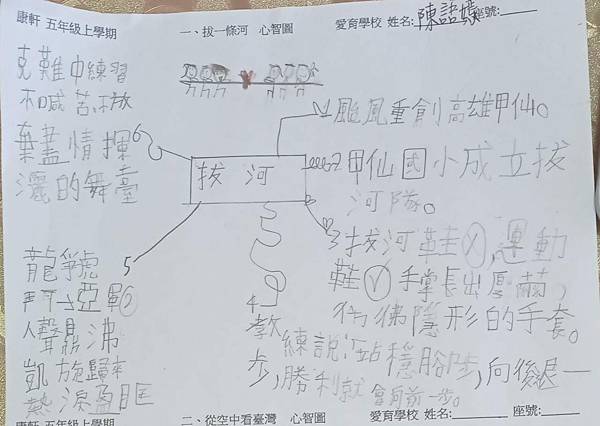 康軒 五年級上學期 一、拔一條河 心智圖 愛育學校 姓名: 陳語 座號:
拔河
1 颱風重創高雄甲仙。
2 甲仙國小成立拔
河隊。
3 拔河鞋 X,運動
鞋 V 手掌長出厚繭,
彷彿隱形的手套。
4 教練說:站穩腳
步,向後退一
步,勝利就會向前一步。
5 龍爭虎
鬥→亞軍②
人聲鼎沸
凱旋歸來
熱淚盈眶
6 克難中練習
不喊苦不放
棄盡情揮
灑的舞臺
康軒 五年級上學期 二、從空中看臺灣 心智圖 愛育學校 姓名: 座號: